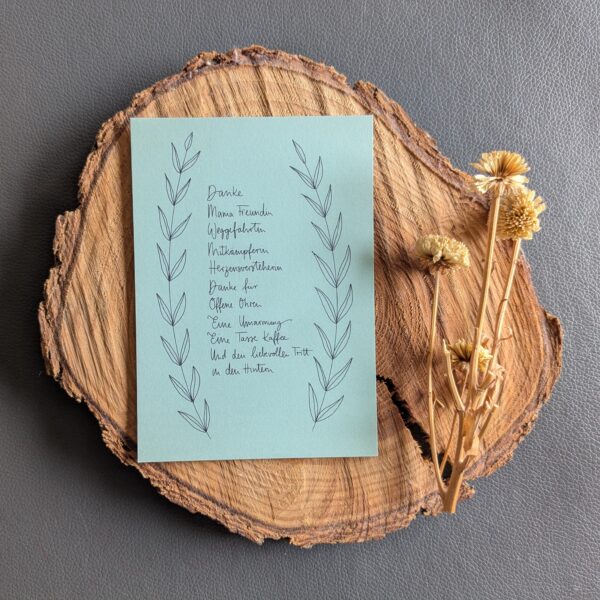 Danke
Mama Freundin
Weggefährtin
Mitkämpferin
Herzensversteherin
Danke für
Offene Ohren
Eine Umarmung
Eine Tasse Kaffee
Und den liebevollen Tritt
in den Hintern